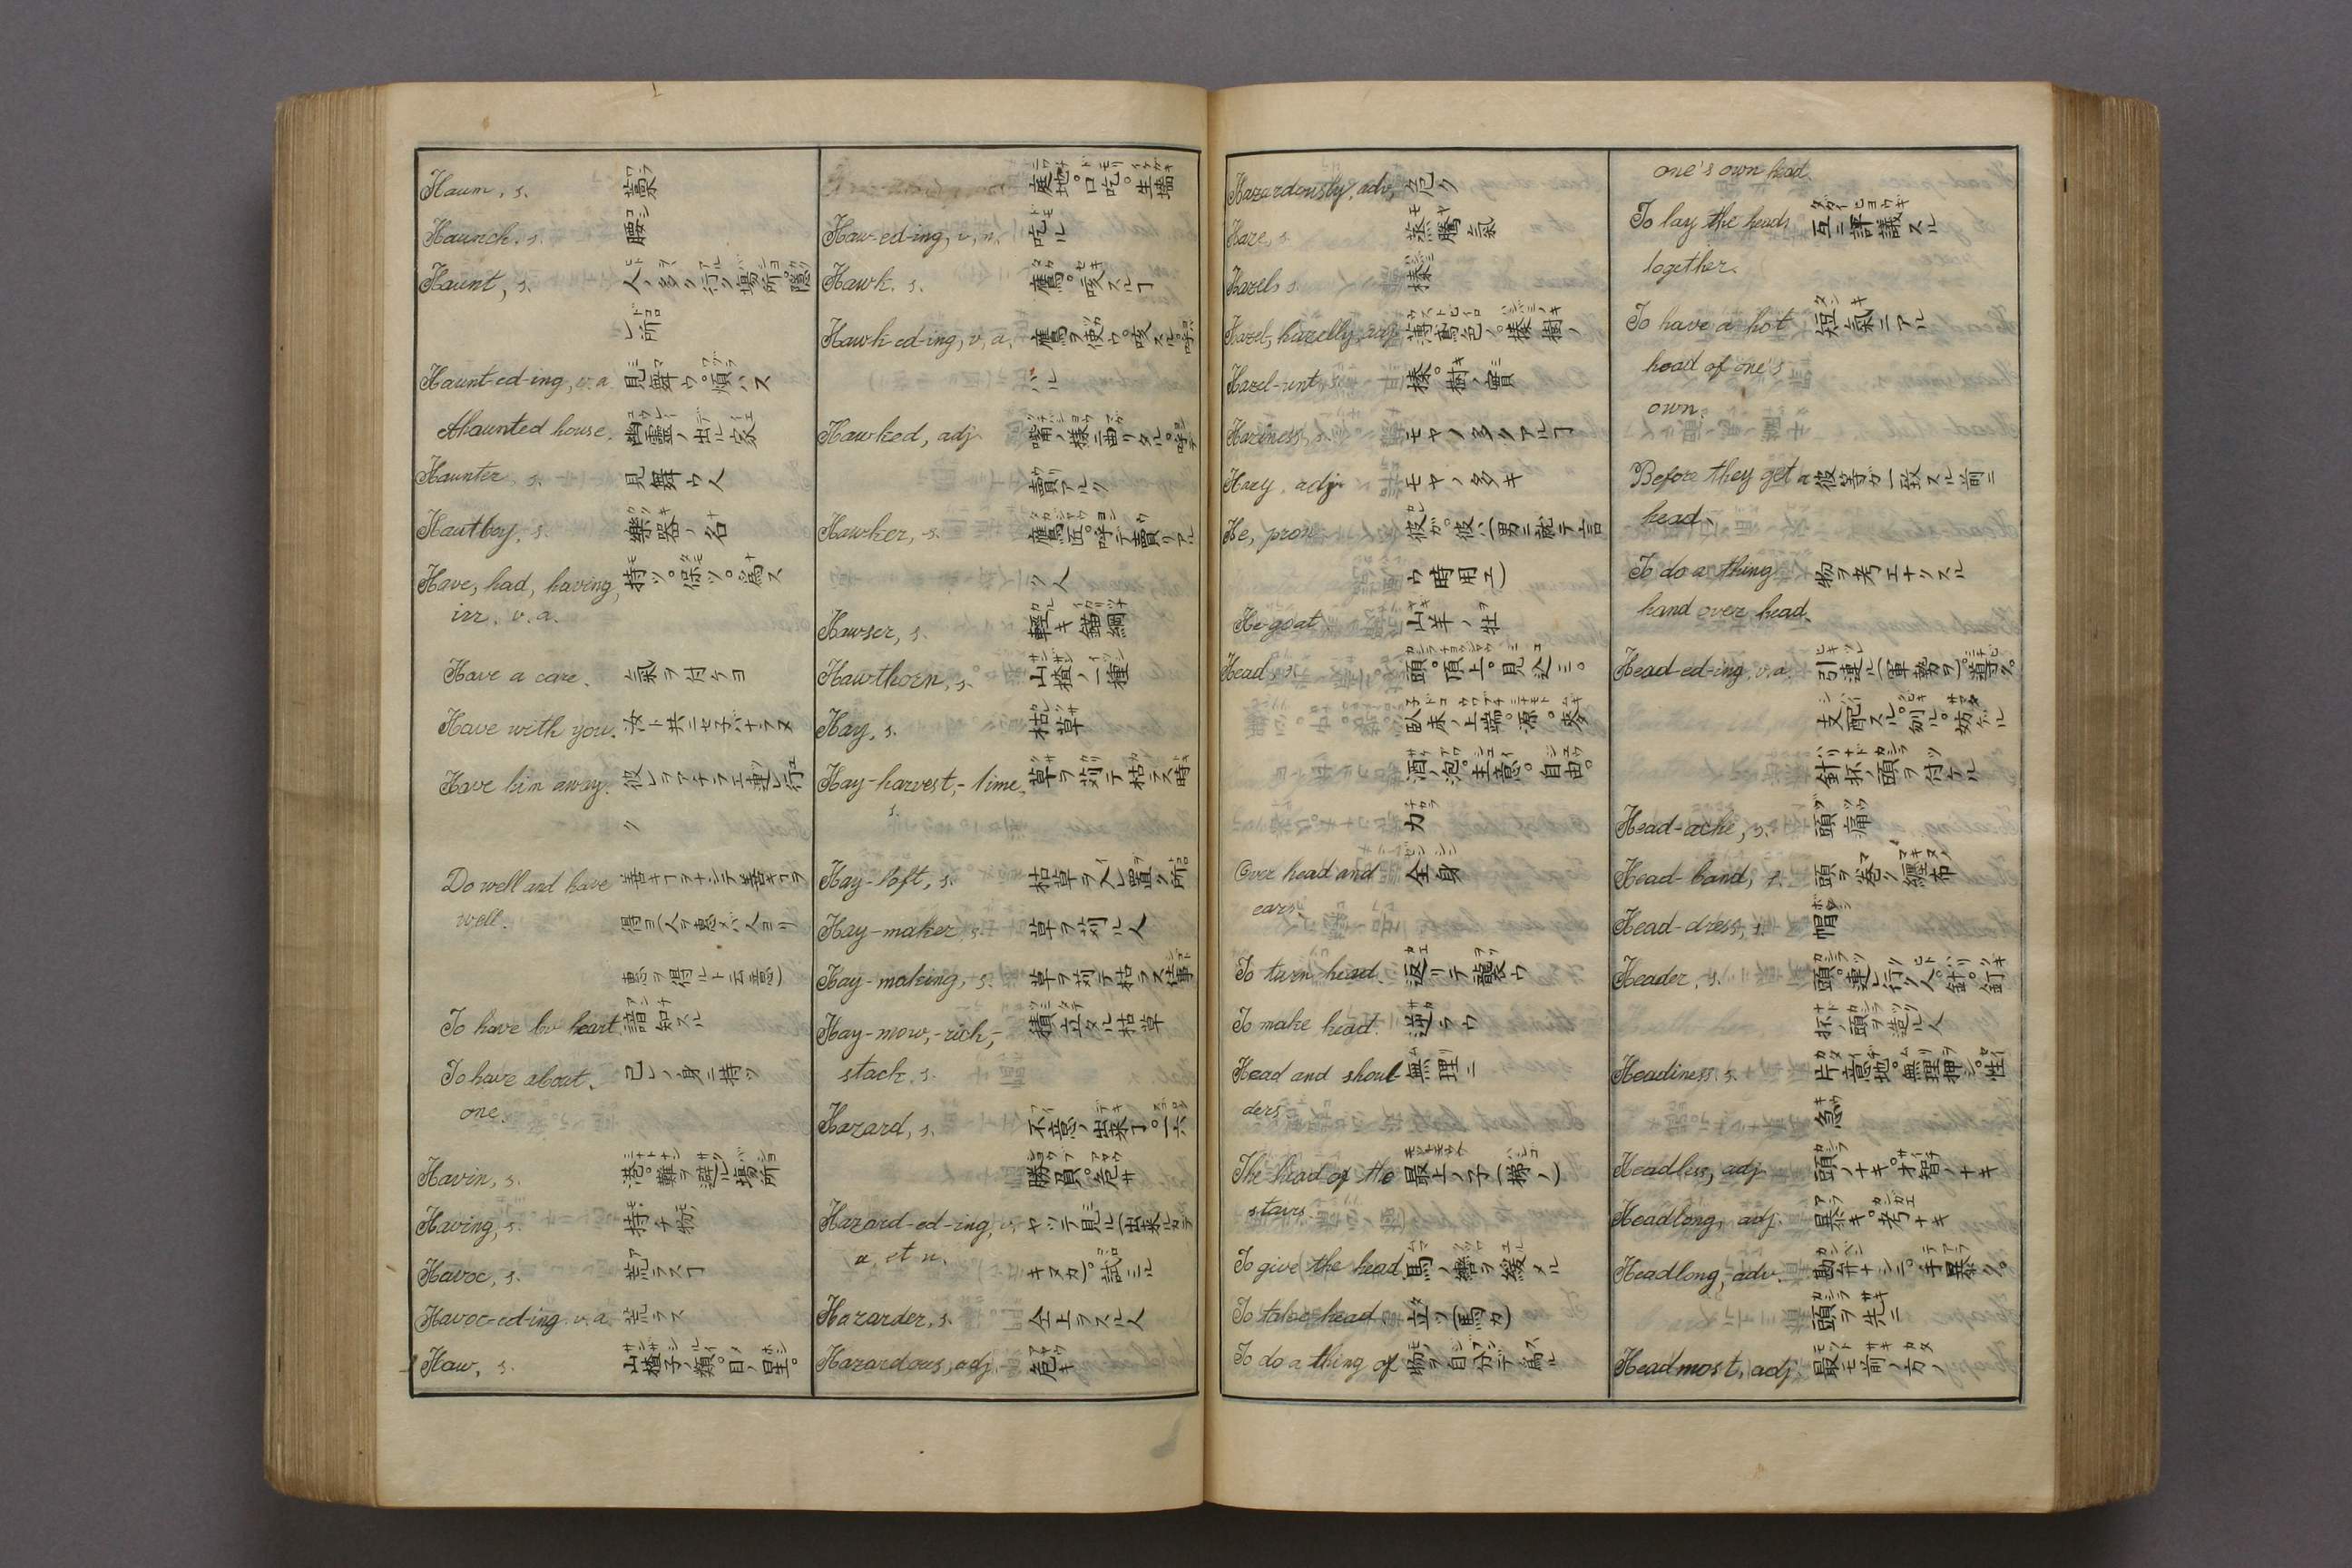 Haum, s. 藁
Haunch. s. 腰
Haunt, s. 人ノ多ク行ク場所。隱
レ所
Haunt-ed-ing, v. a. 見舞ウ。煩ハス
A haunted house. 幽霊ノ出ル家
Haunter, s. 見舞ウ人
Hautboy, s. 樂器ノ名
Have, had, having, 持ツ。保ツ。爲ス
irr. v. a.
Have a care. 氣ヲ付ケヨ
Have with you. 汝ト共ニセ子バナラヌ
Have him away. 彼レヲアチラエ連レ行
ク
Do well and have 善キヿヲナシテ善キヿヲ
well. 得ヨ(人ヲ恵メバ人ヨリ
恵ヲ得ルト云意)
To have bv heart. 諳知スル
To have about. 己レノ身ニ持ツ
one.
Havin, s. 港。難ヲ避ル場所
Having, s. 持チ物
Havoc, s. 荒ラスヿ
Havoc-ed-ing. v. a. 荒ラス
Haw, s. 山樝子ノ類。目ノ星。
庭地。口吃。生墻
Haw-ed-ing, v. n. 吃ル
Hawk. s. 鷹。咳スルヿ
Hawk-ed-ing, v, a, 鷹ヲ使ウ。咳スル。呼
ハル
Hawked, adj. 嘴ノ様ニ曲リタル。呼テ
賣アルク
Hawker, s. 鷹匠。呼テ賣リアル
ク人
Hawser, s. 輕キ錨綱
Hawthorn, s. 山樝ノ一種
Hay, s. 枯草
Hay-harvest,-time, 草ヲ刈テ枯ラス時
s.
Hay-loft, s. 枯草ヲ入レ置ク所
Hay-maker, s. 草ヲ刈ル人
Hay-making, s. 草ヲ刈テ枯ラス仕事
Hay-mow,-rick,- 積立タル枯草
stack. s.
Hazard, s. 不意ノ出来ヿ。一六
勝負。危サ
Hazard-ed-ing, v. ヤツテ見ル(出来ルカデ
a. et n. キヌカ)。試ミル
Hazarder, s. 仝上ヲスル人
Hazardous, adj. 危キ
Hazardously, adv, 危ク
Haze, s. 蒸騰氣
Hazel, s. 榛
Hazel, hazelly, adj. 薄鳶色ノ。榛樹ノ
Hazel-nut, s. 榛。樹ノ實
Haziness, s. モヤノ多クアルヿ
Hazy, adj. モヤノ多キ
He, pron. 彼ガ。彼ハ(男ニ就テ言
ウ時用エ)
He-goat 山羊ノ牡
Head, s. 頭。頂上。見込ミ。
臥床ノ上端。源。麥
酒ノ泡。主意。自由。
力
Over head and 全身
ears.
To turn head. 返リテ襲ウ
To make head. 逆ラウ
Head and shoul- 無理ニ
ders.
The head of the 最上ノ子(梯ノ)
stairs.
To give the head 馬ノ轡ヲ緩メル
To take head. 立ツ(馬カ)
To do a thing of 物ヲ自分デ爲ル
one's own head.
To lay the heads 互ニ評議スル
together.
To have a hot 短氣ニアル
head of one's
own.
Before they get a 彼等ガ一致スル前ニ
head,
To do a thing 物ヲ考エナクスル
hand over head.
Head-ed-ing, v. a. 引連ル(軍勢ヲ)。導ク。
支配スル。刎ル。妨ケル
針抔ノ頭ヲ付ケル
Head-ache, s. 頭痛
Head-band, s. 頭ヲ巻ク纏布
Head-dress, s. 帽
Header, s. 頭。連レ行ク人。針。釘
抔ノ頭ヲ造ル人
Headiness. s. 片意地。無理押シ。性
急
Headless, adj. 頭ノナキ。才智ノナキ
Headlong, adj. 暴キ。考ナキ
Headlong, adv. 勘弁ナシニ。手暴ク。
頭ヲ先ニ
Headmost, adj. 最モ前ノ方ノ